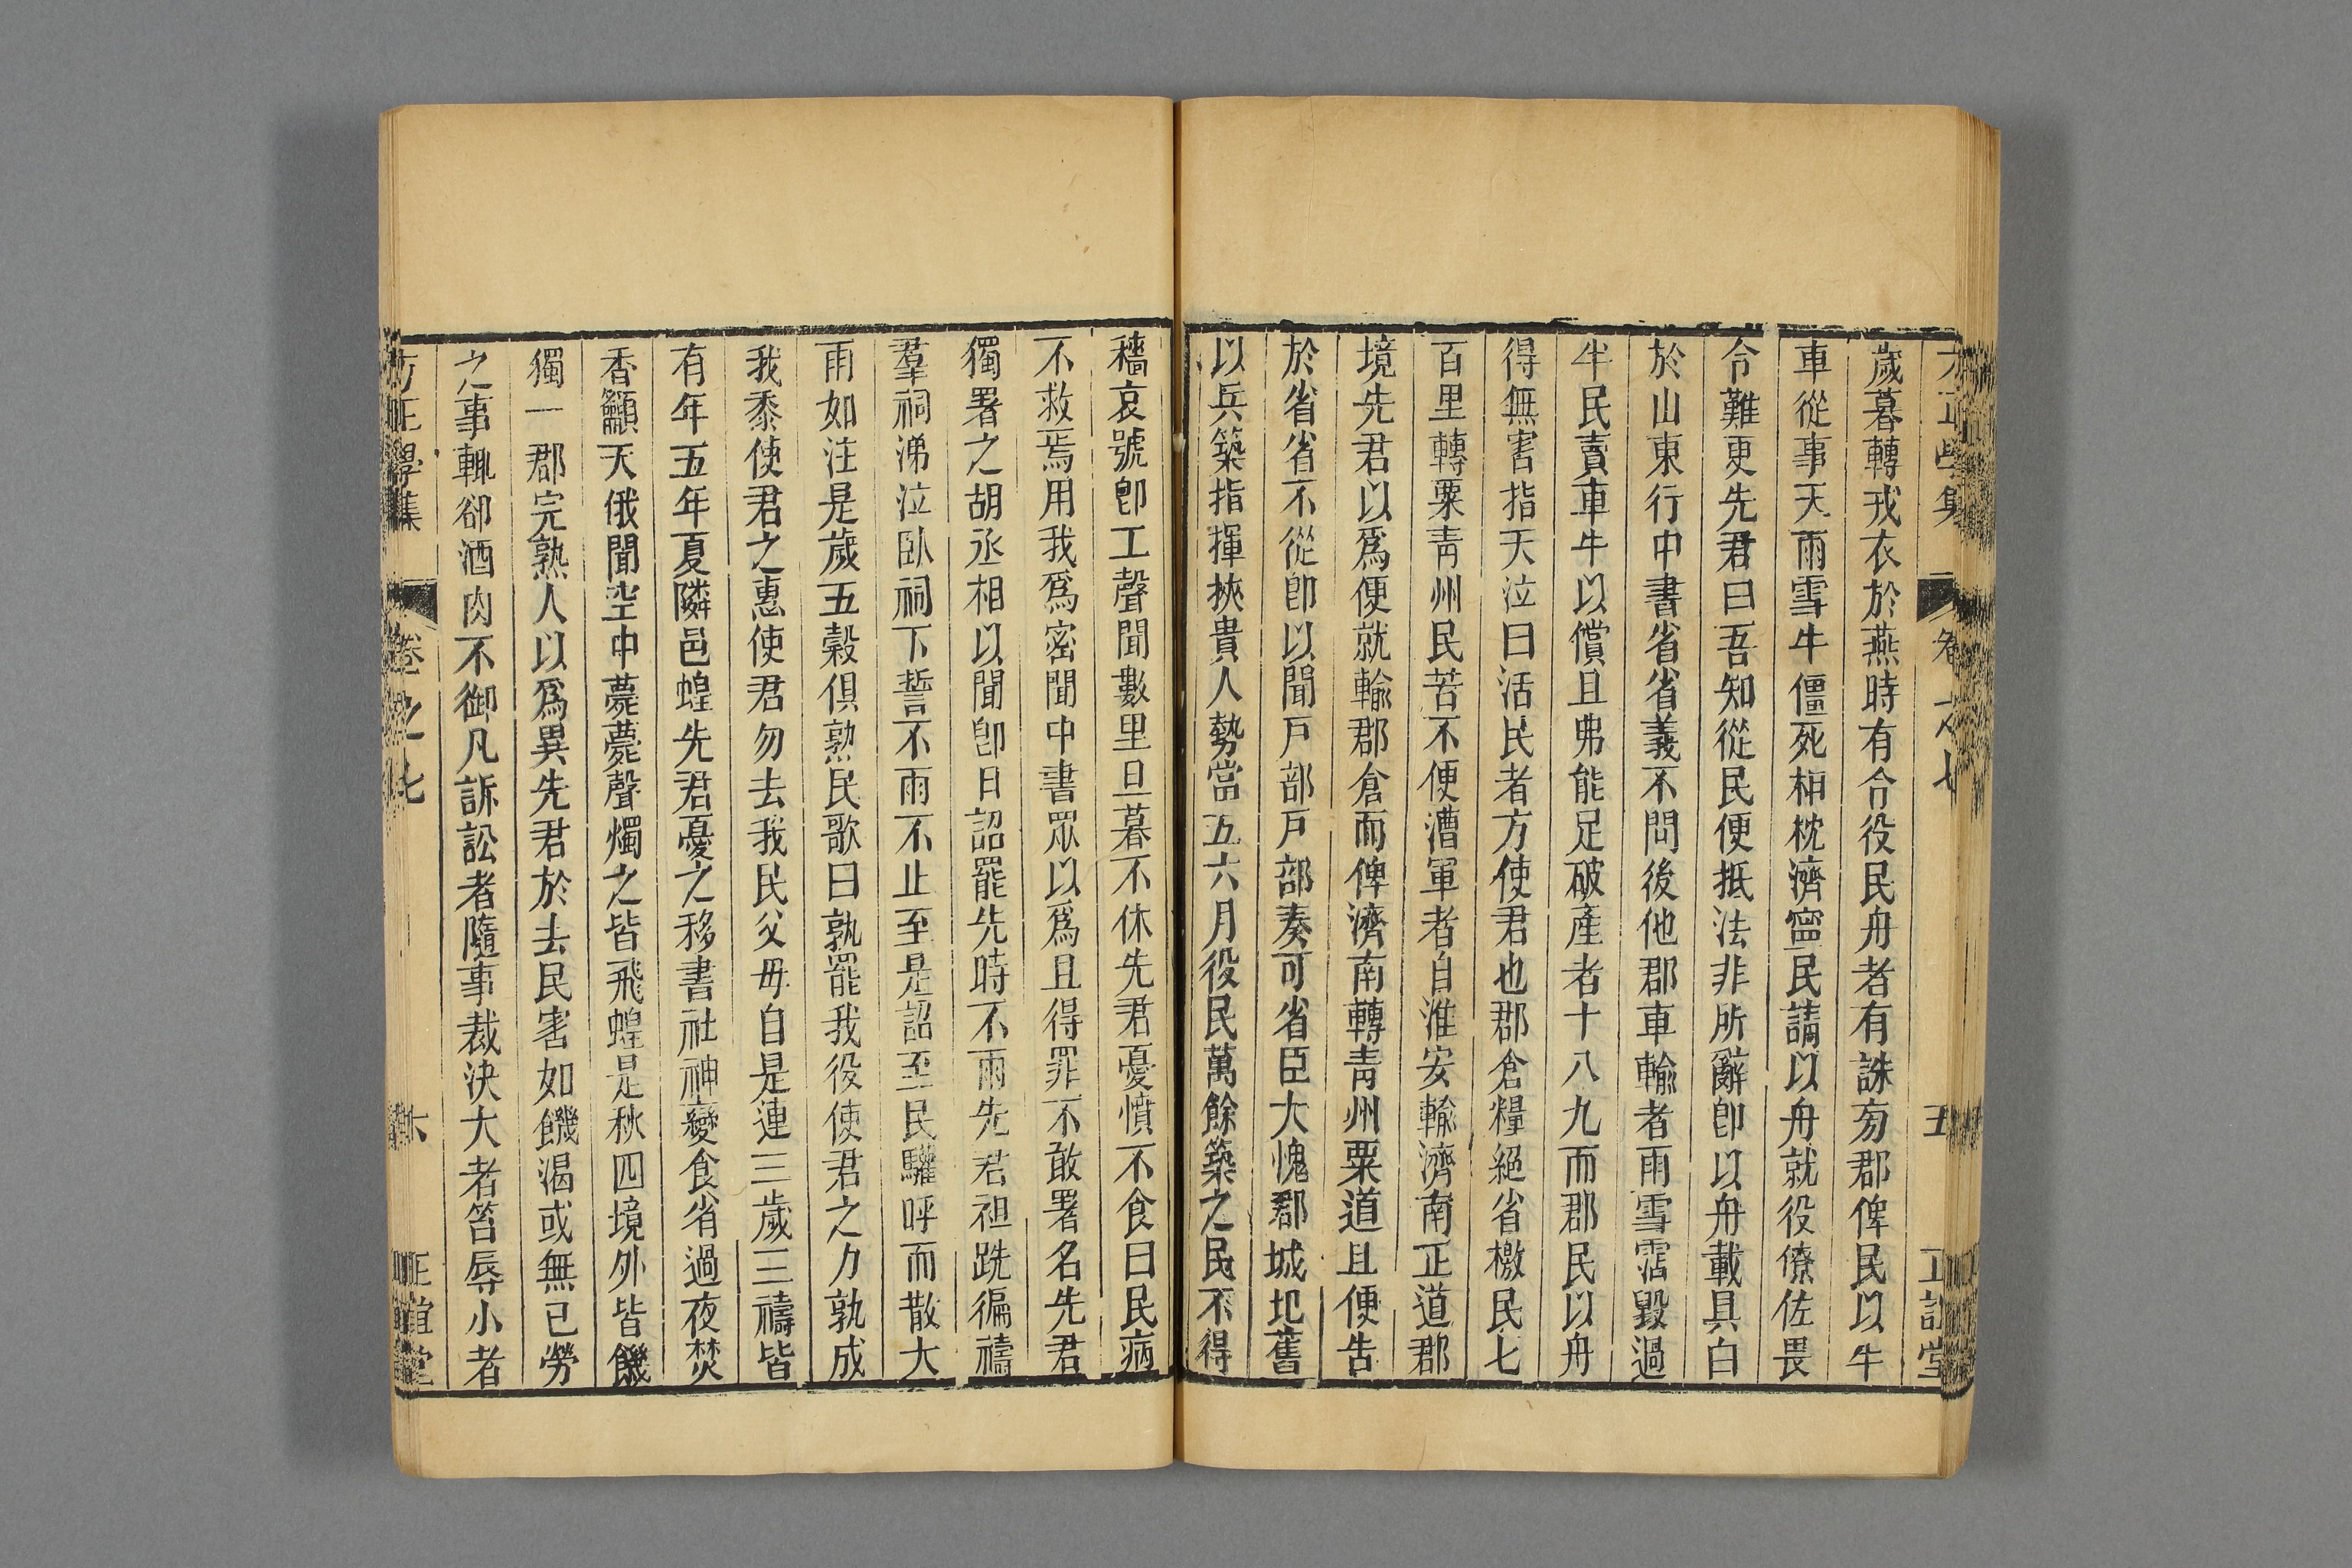 歲暮轉戎衣於燕時有合役民舟者有誅旁郡俾民以牛
車從事天雨雪牛僵死相枕濟甯民請以舟就役僚佐畏
令難更先君曰吾知從民便抵法非所辭卽以舟載具白
於山東行中書省省義不問後他郡車輸者雨雪霑毀過
半民賣車牛以償且弗能足破產者十八九而郡民以舟
得無害指天泣曰活民者方使君也郡倉糧絕省檄民七
百里轉粟靑州民苦不便漕軍者自淮安輸濟南正道郡
境先君以爲便就輸郡倉而俾濟南轉靑州粟道且便吿
於省省不從卽以聞戶部戶部奏可省臣大愧郡城圮舊
以兵築指揮挾貴人勢當五六月役民萬餘築之民不得
穡哀號卽工聲聞數里旦暮不休先君憂憤不食曰民病
不救焉用我爲密聞中書眾以爲且得罪不敢署名先君
獨署之胡丞相以聞卽日詔罷先時不雨先君袒跣徧禱
羣祠涕泣臥祠下誓不雨不止至是詔至民驩呼而散大
雨如注是歲五穀俱熟民歌曰孰罷我役使君之力孰成
我黍使君之惠使君勿去我民父毋自是連三歲三禱皆
有年五年夏隣邑蝗先君憂之移書社神變食省過夜焚
香籲天俄聞空中薨薨聲燭之皆飛蝗是秋四境外皆饑
獨一郡完熟人以爲異先君於去民害如饑渴或無已勞
之事輒卻酒肉不御凡訴訟者隨事裁決大者笞辱小者
方正學集 卷之七 六 正誼堂